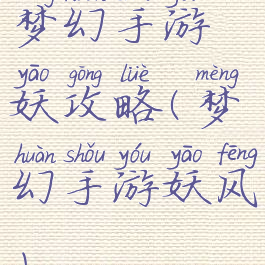 梦幻手游
yāo gōng lüè mèng
妖攻略(梦
huàn shǒu yóu yāo fēng
幻手游妖风
)